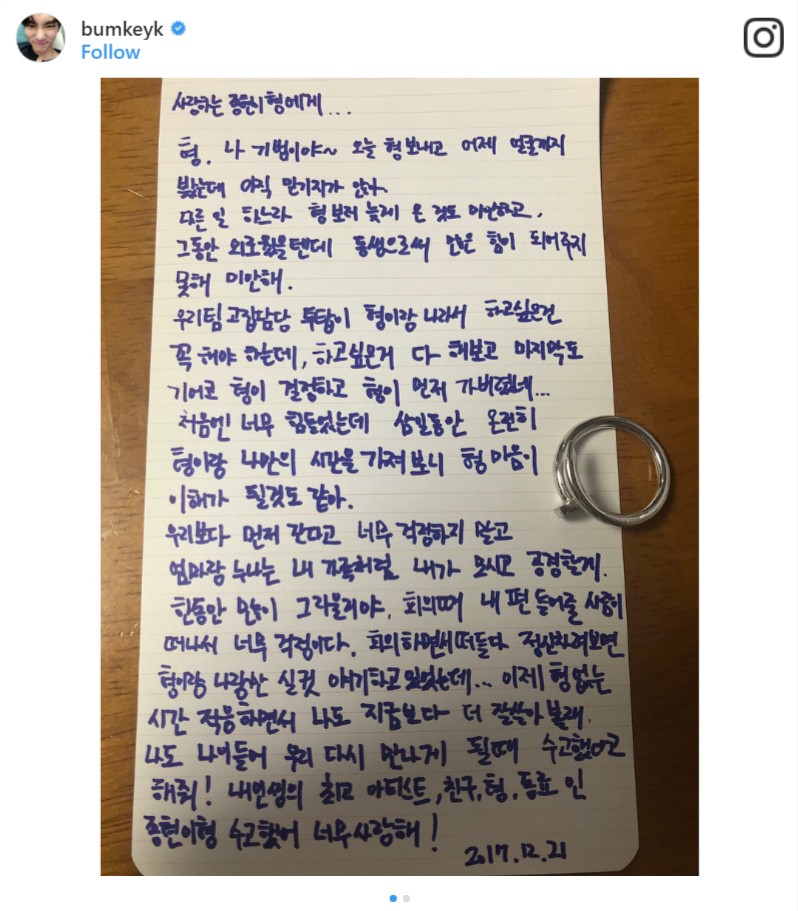 bumkeyk
Follow
사랑하는 종현이형에게...
형. 나 기범이야~ 오늘 형 보내고 어제 얼굴까지
봤는데 아직 믿기지가 않아.
다른 일 하느라 형 보러 늦게 온 것도 미안하고,
그동안 외로웠을텐데 동생으로써 많은 힘이 되어주지
못해 미안해.
우리팀 고집담당 투탑이 형이랑 나라서 하고싶은건
꼭 해야 하는데, 하고싶은거 다 해보고 마지막도
기어코 형이 결정하고 형이 먼저 가버렸네...
처음엔 너무 힘들었는데 삼일동안 온전히
형이랑 나만의 시간을 가져 보니 형 마음이
이해가 될것도 같아.
우리보다 먼저 간다고 너무 걱정하지 말고
엄마랑 누나는 내 가족처럼 내가 모시고 공경할게.
한동안 많이 그리울거야. 회의때 내 편 들어줄 사람이
떠나서 너무 걱정이다. 회의하면서 떠들다 정신차려보면
형이랑 나랑만 실컷 얘기하고 있었는데... 이제 형 없는
시간 적응하면서 나도 지금보다 더 잘살아 볼래.
나도 나이들어 우리 다시 만나게 될때 수고했다고
해줘! 내인생의 최고 아티스트, 친구, 형, 동료 인
종현이형 수고했어 너무사랑해!
2017.12.21